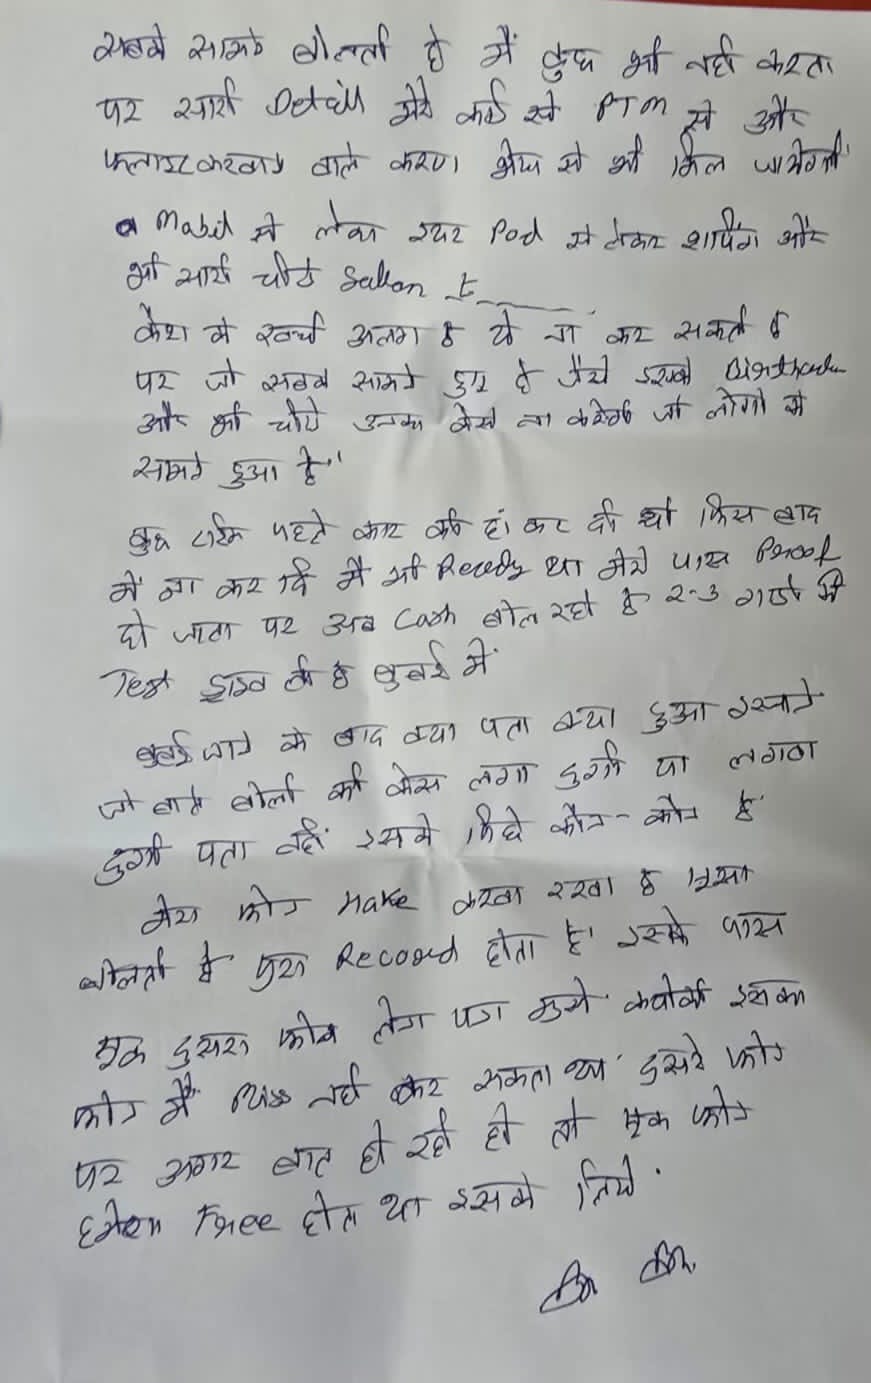 सबके सामने बोलती है मैं कुछ भी नहीं करता
पर सारी Detail मेरे कार्ड से PTM से और
वाले से भी मिल जायेगी
Mobil से लेकर इयर Pod से लेकर शापिंग और
भी सारी चीजे Sallon
कैश में खर्चा अलग है ये ना कर सकती है
पर जो सबके सामने हुए है जैसे इसका Birthday
और भी चीजे उनका कैसे ना करेगी जो लोगो के
सामने हुआ है"
कुछ टाईम पहले कार की हां कर दी थी फिर बाद
में ना कर दि मैं भी Ready था मेरे पास Proof
हो जाता पर अब Cash बोल रही है 2-3 गाडी की
Test ड्राइव ली है मुंबई में
मुंबई जाने के बाद क्या पता क्या हुआ इसने
जो बात बोली की केस लगा दुगी या लगवा
दुगी पता नहीं इसके पिछे कौन-कौन है
मेरा फोन Hake करवा रखा है ऐसा
बोलती है पुरा Record होता है। इसके पास
एक दुसरा फोन लेना पडा मुझे क्योंकी इसका
फोन मैं Miss नहीं कर सकता था दुसरे फोन
पर अगर बात हो रही हो तो एक फोन
हमेशा Free होता था इसके लिये.